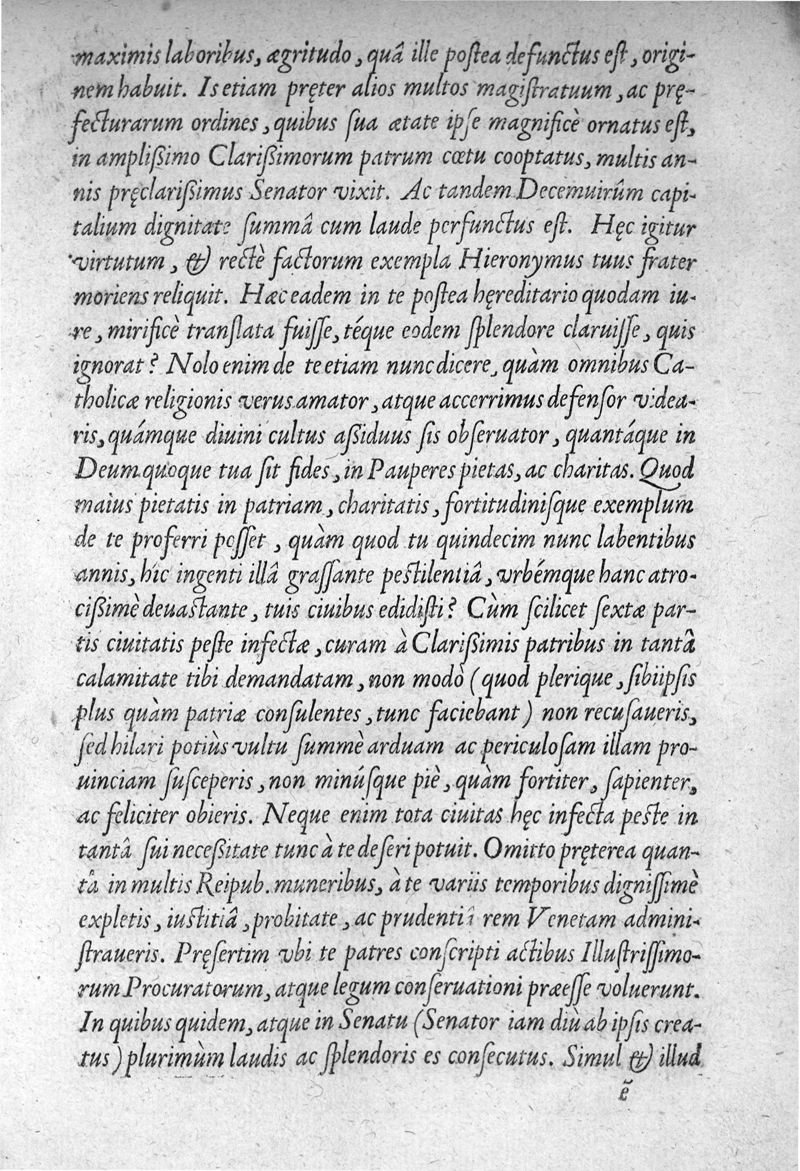 maximis laboribus, ægritudo, quâ ille postea defunctus est, origi-
nem habuit. Is etiam pręter alios multos magistratuum, ac prę-
fecturarum ordines, quibus sua ætate ipse magnificè ornatus est,
in amplißimo Clarißimorum patrum cœtu cooptatus, multis an-
nis pręclarißimus Senator vixit. Ac tandem Decemuirûm capi-
talium dignitate summâ cum laude perfunctus est. Hęc igitur
virtutum, & rectè factorum exempla Hieronymus tuus frater
moriens reliquit. Hæc eadem in te postea hęreditario quodam iu-
re, mirificè translata fuisse, téque eodem splendore claruisse, quis
ignorat? Nolo enim de te etiam nunc dicere, quàm omnibus Ca-
tholicæ religionis verus amator, atque accerrimus defensor videa-
ris, quámque diuini cultus aßiduus sis obseruator, quantáque in
Deum quoque tua sit fides, in Pauperes pietas, ac charitas. Quod
maius pietatis in patriam, charitatis, fortitudinisque exemplum
de te proferri posset, quàm quod tu quindecim nunc labentibus
annis, hic ingenti illâ grassante pestilentiâ, vrbémque hanc atro-
cißimè deuastante, tuis ciuibus edidisti? Cùm scilicet sextæ par-
tis ciuitatis peste infectæ, curam à Clarißimis patribus in tantâ
calamitate tibi demandatam, non modò (quod plerique, sibiipsis
plus quàm patriæ consulentes, tunc faciebant) non recusaueris,
sed hilari potiùs vultu summè arduam ac periculosam illam pro-
uinciam susceperis, non minúsque piè, quàm fortiter, sapienter,
ac feliciter obieris. Neque enim tota ciuitas hęc infecta peste in
tantâ sui neceßitate tunc à te deseri potuit. Omitto pręterea quan-
tâ in multis Reipub. muneribus, à te variis temporibus dignissimè
expletis, iustitiâ, probitate, ac prudentiâ rem Venetam admini-
straueris. Pręsertim vbi te patres conscripti actibus Illustrissimo-
rum Procuratorum, atque legum conseruationi præesse voluerunt.
In quibus quidem, atque in Senatu (Senator iam diù ab ipsis crea-
tus) plurimùm laudis ac splendoris es consecutus. Simul & illud
ẽ